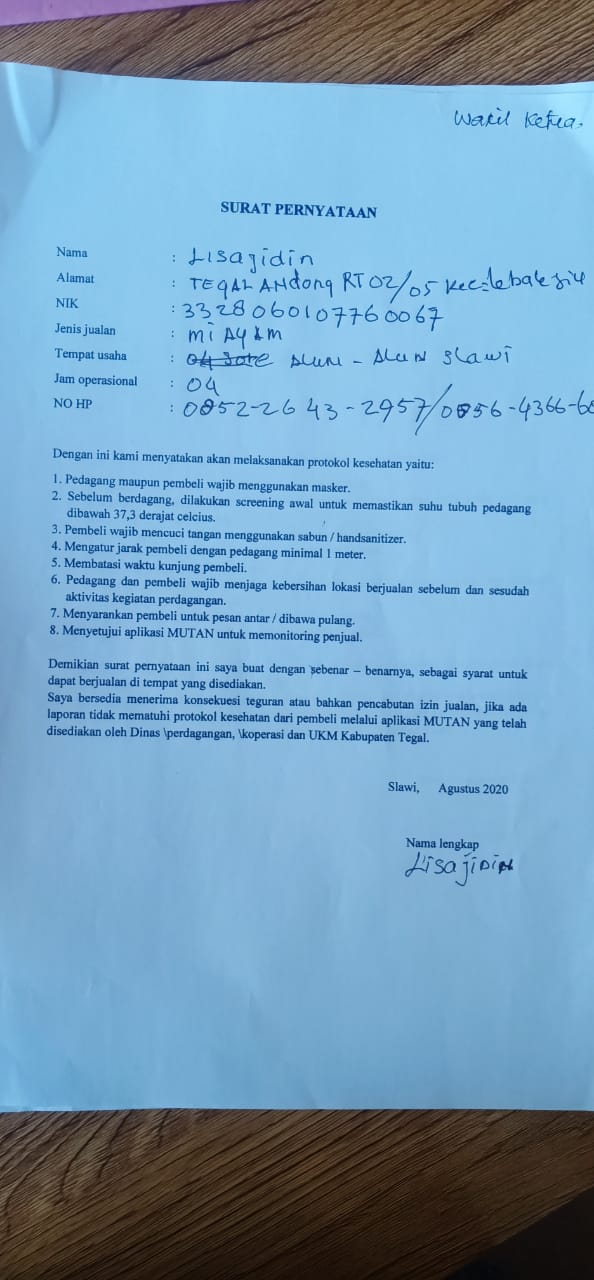 Wakil Ketua.
SURAT PERNYATAAN
Nama : Lisajidin
Alamat : TEGAL ANdong RT 02/05 Kec: lebaksiu
NIK : 3328060107760067
Jenis jualan : mi AyAm
Tempat usaha : 04 Sore ALUN - ALUN SLawi
Jam operasional : 04
NO HP : 0852-2643-2957/0856-4366-60
Dengan ini kami menyatakan akan melaksanakan protokol kesehatan yaitu:
1. Pedagang maupun pembeli wajib menggunakan masker.
2. Sebelum berdagang, dilakukan screening awal untuk memastikan suhu tubuh pedagang
dibawah 37,3 derajat celcius.
3. Pembeli wajib mencuci tangan menggunakan sabun / handsanitizer.
4. Mengatur jarak pembeli dengan pedagang minimal 1 meter.
5. Membatasi waktu kunjung pembeli.
6. Pedagang dan pembeli wajib menjaga kebersihan lokasi berjualan sebelum dan sesudah
aktivitas kegiatan perdagangan.
7. Menyarankan pembeli untuk pesan antar / dibawa pulang.
8. Menyetujui aplikasi MUTAN untuk memonitoring penjual.
Demikian surat pernyataan ini saya buat dengan sebenar – benarnya, sebagai syarat untuk
dapat berjualan di tempat yang disediakan.
Saya bersedia menerima konsekuesi teguran atau bahkan pencabutan izin jualan, jika ada
laporan tidak mematuhi protokol kesehatan dari pembeli melalui aplikasi MUTAN yang telah
disediakan oleh Dinas \perdagangan, \koperasi dan UKM Kabupaten Tegal.
Slawi, Agustus 2020
Nama lengkap
LisajiDiN